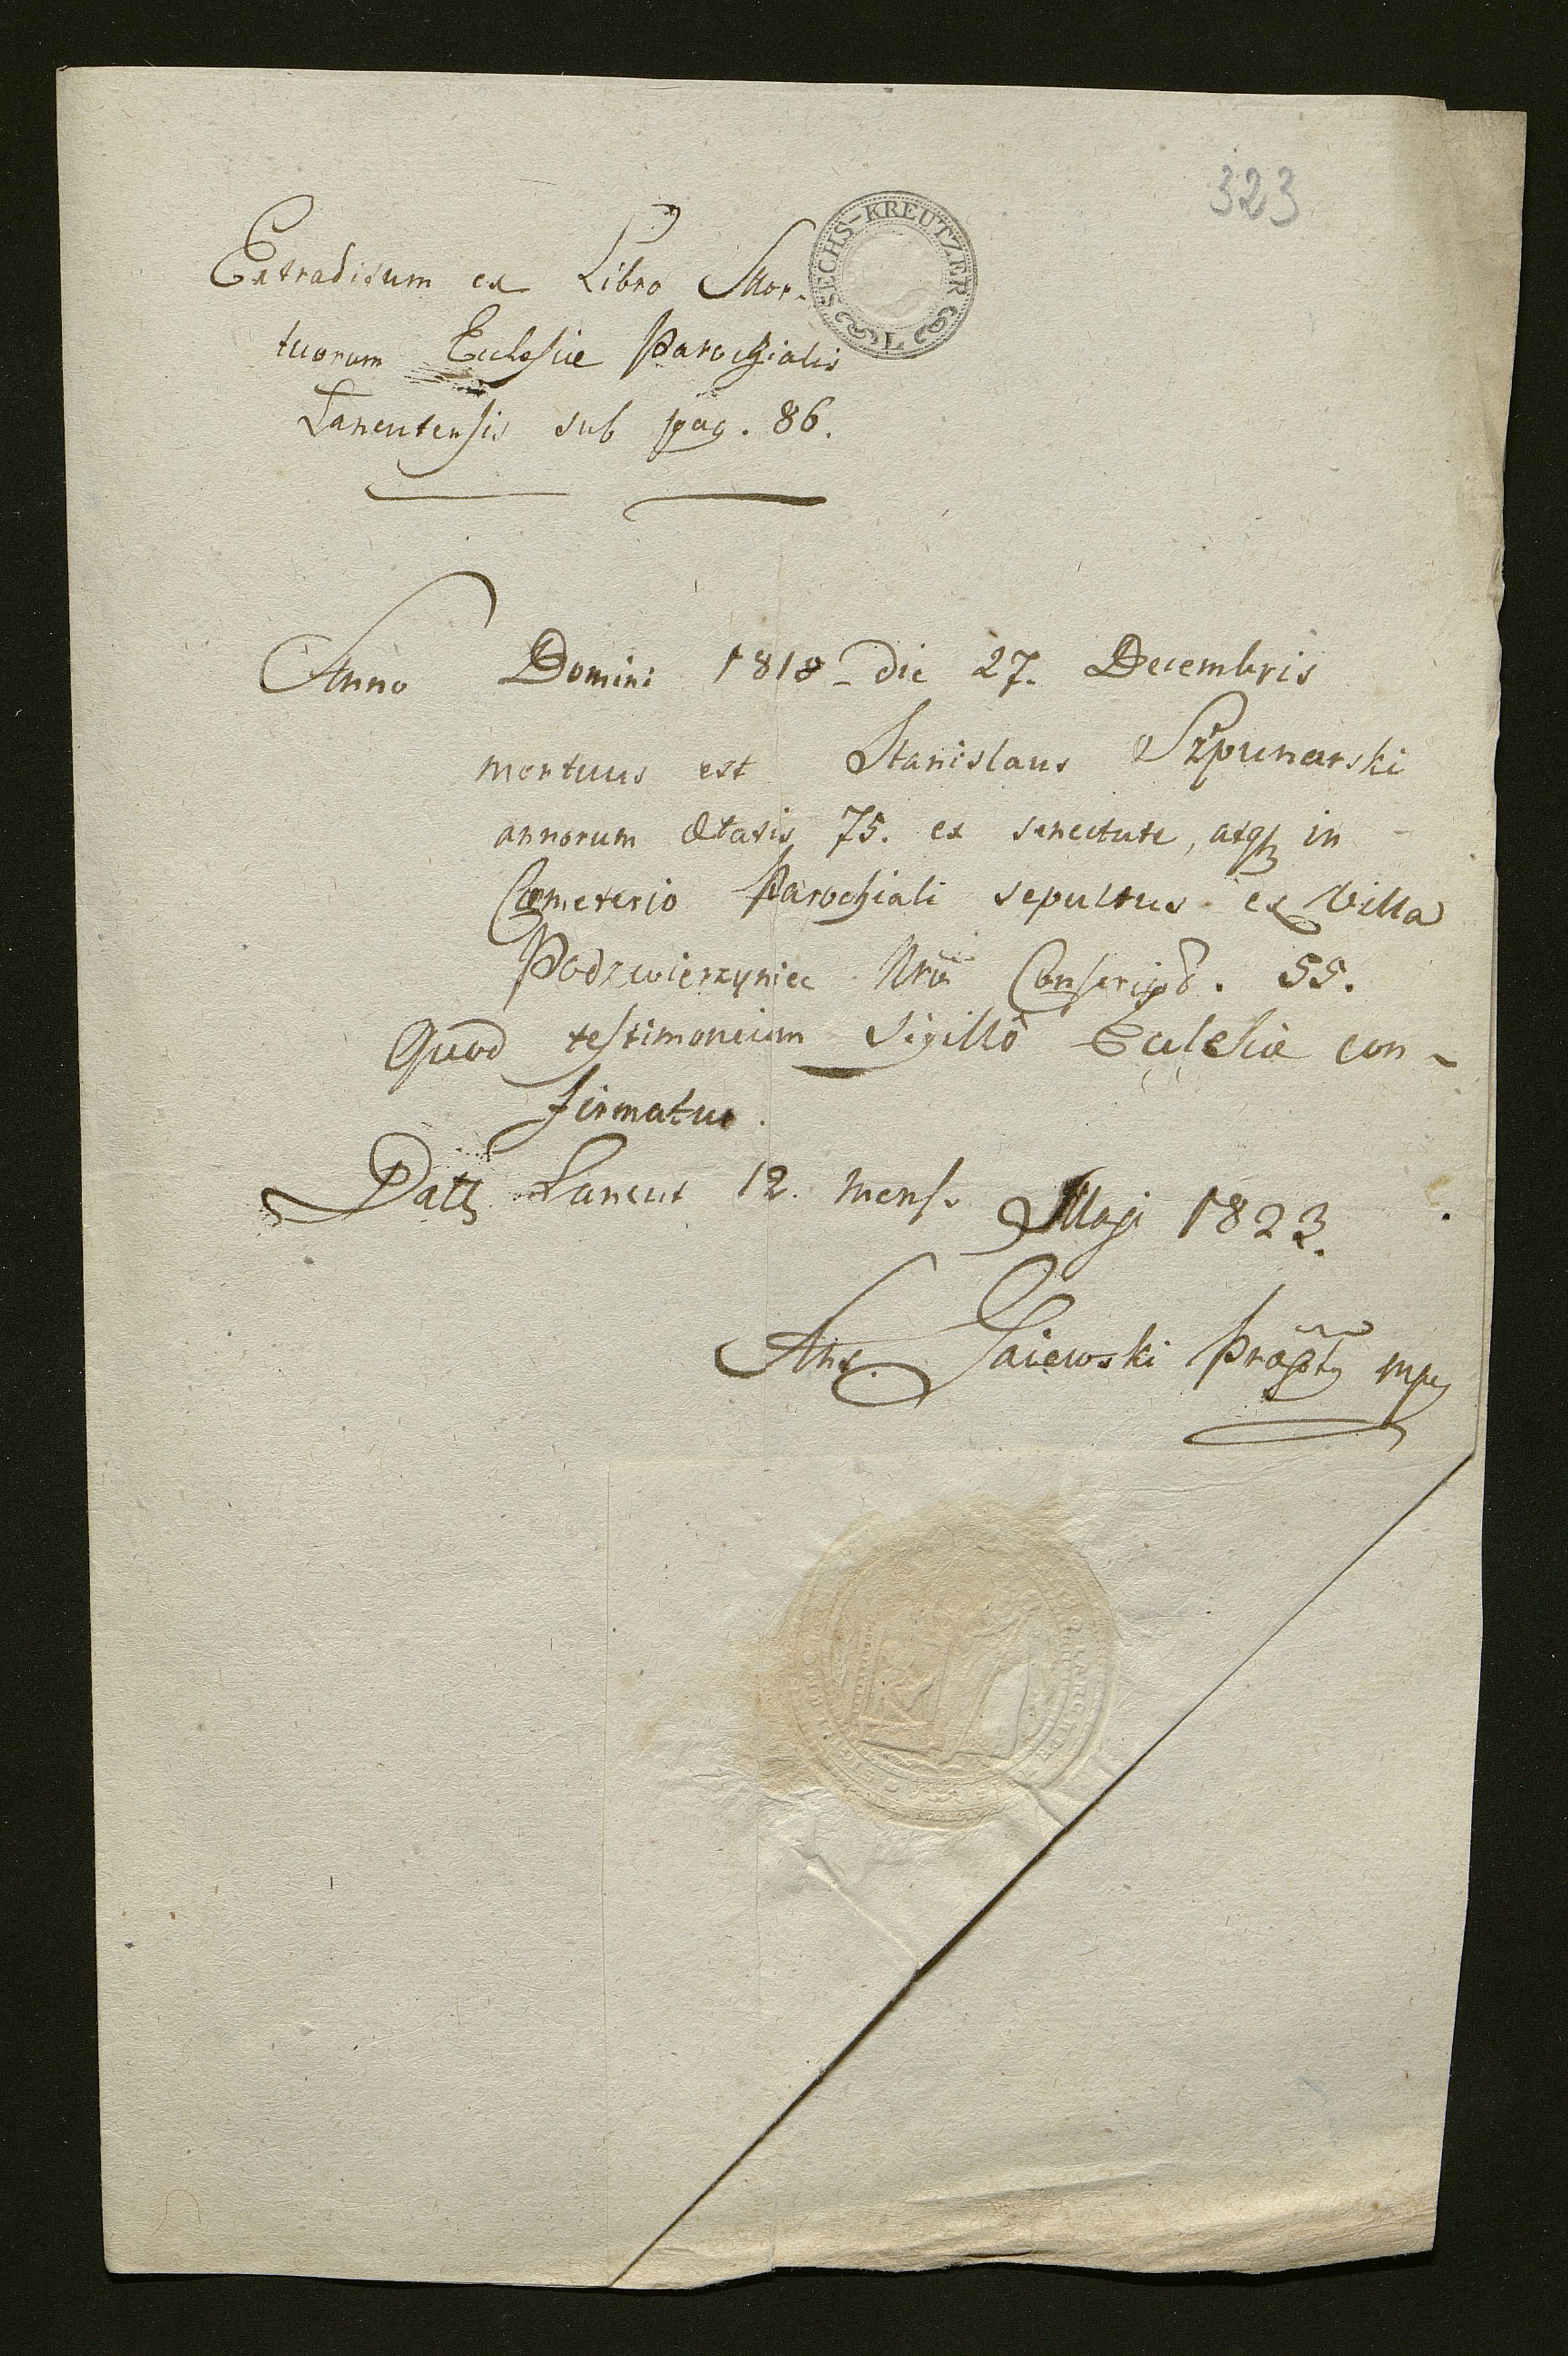 323
SECHS-KREUTZER
L
Extraditum ex Libro Mor-
tuorum Ecclesiæ Parochialis
Lancutensis sub pag. 86.
Anno Domini 1818 die 27. Decembris
mortuus est Stanislaus Szpunarski
annorum ætatis 75. ex senectute, atqz in
Cæmeterio Parochiali sepultus ex Villa
Podzwierzyniec Nrō Conscript. 55.
Quod testimonium Sigillô Ecclesiæ con-
firmatur.
Datt Lancut 12. Mens. Maji 1823.
Ant. Gaiewski mpp